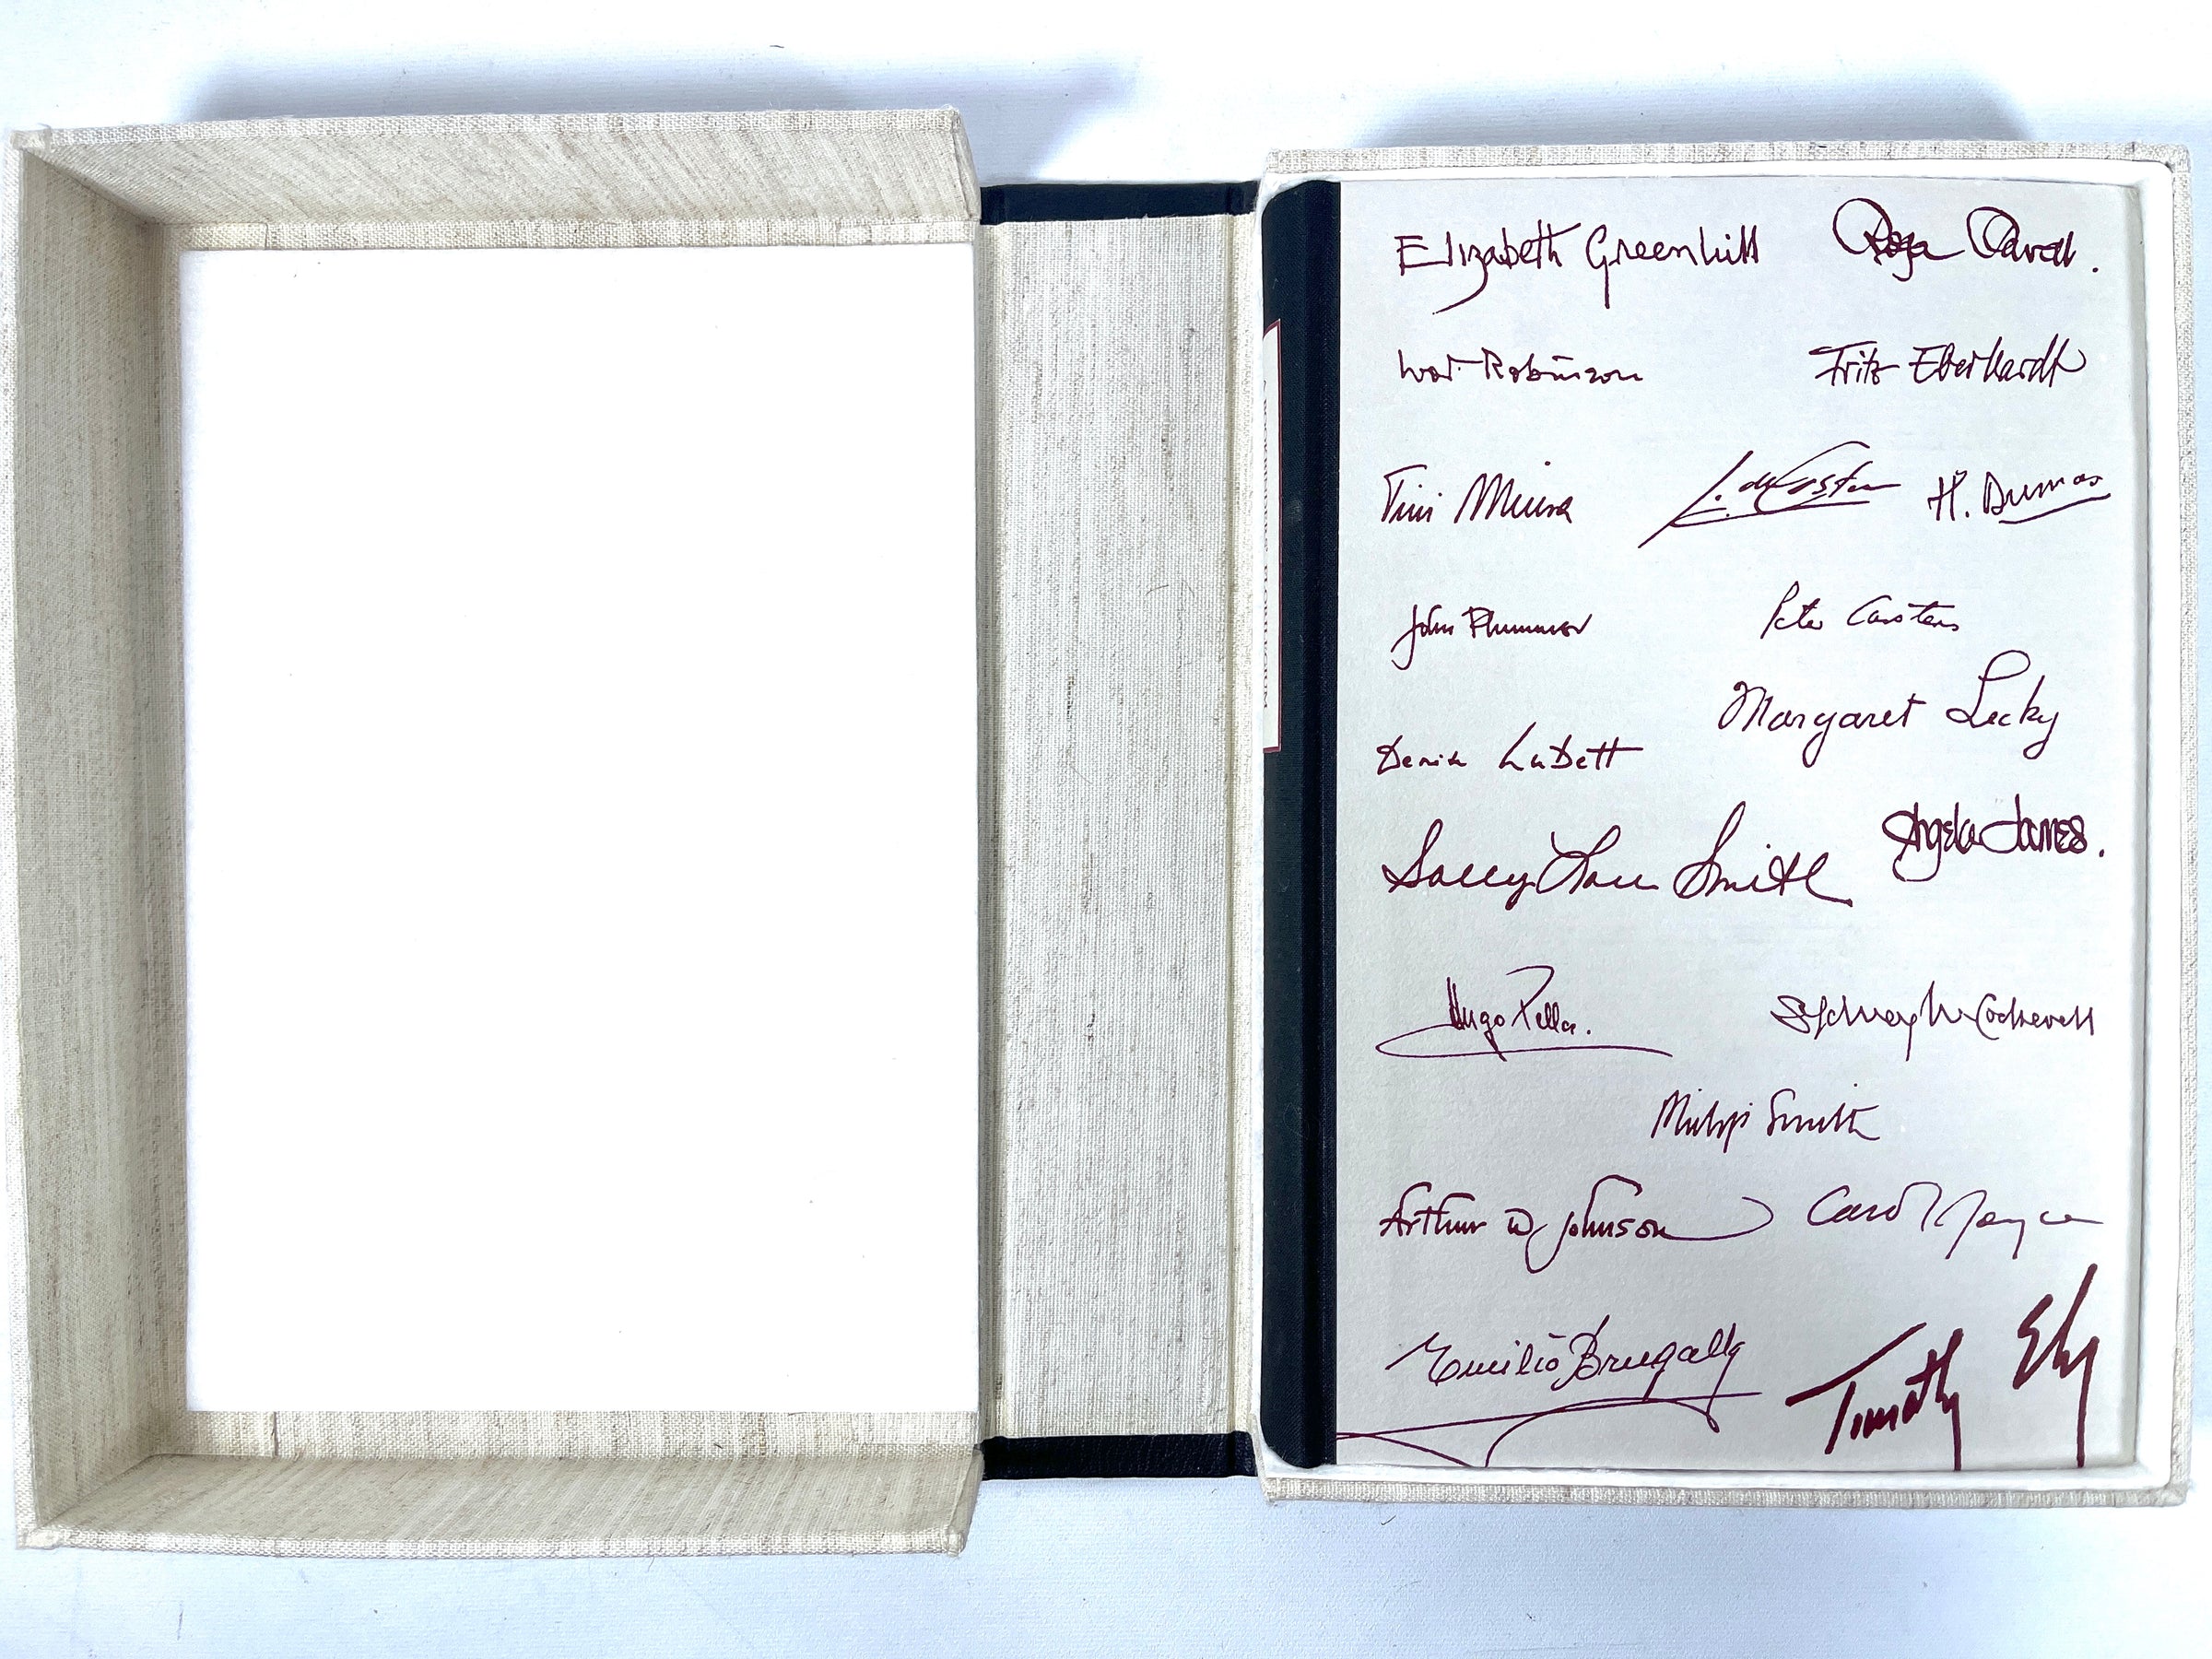 Elizabeth Greenhill Roger Powell.
Ivor Robinson Fritz Eberhardt
Tini Miura J. de Gonet H. Dumas
John Plummer Peter Carstens
Margaret Lecky
Denise Lubett
Angela James.
Sally Lou Smith
Hugo Peller. Sydney M Cockerell
Philip Smith
Arthur W Johnson Carol Joyce
Emilio Brugalla Timothy Ely